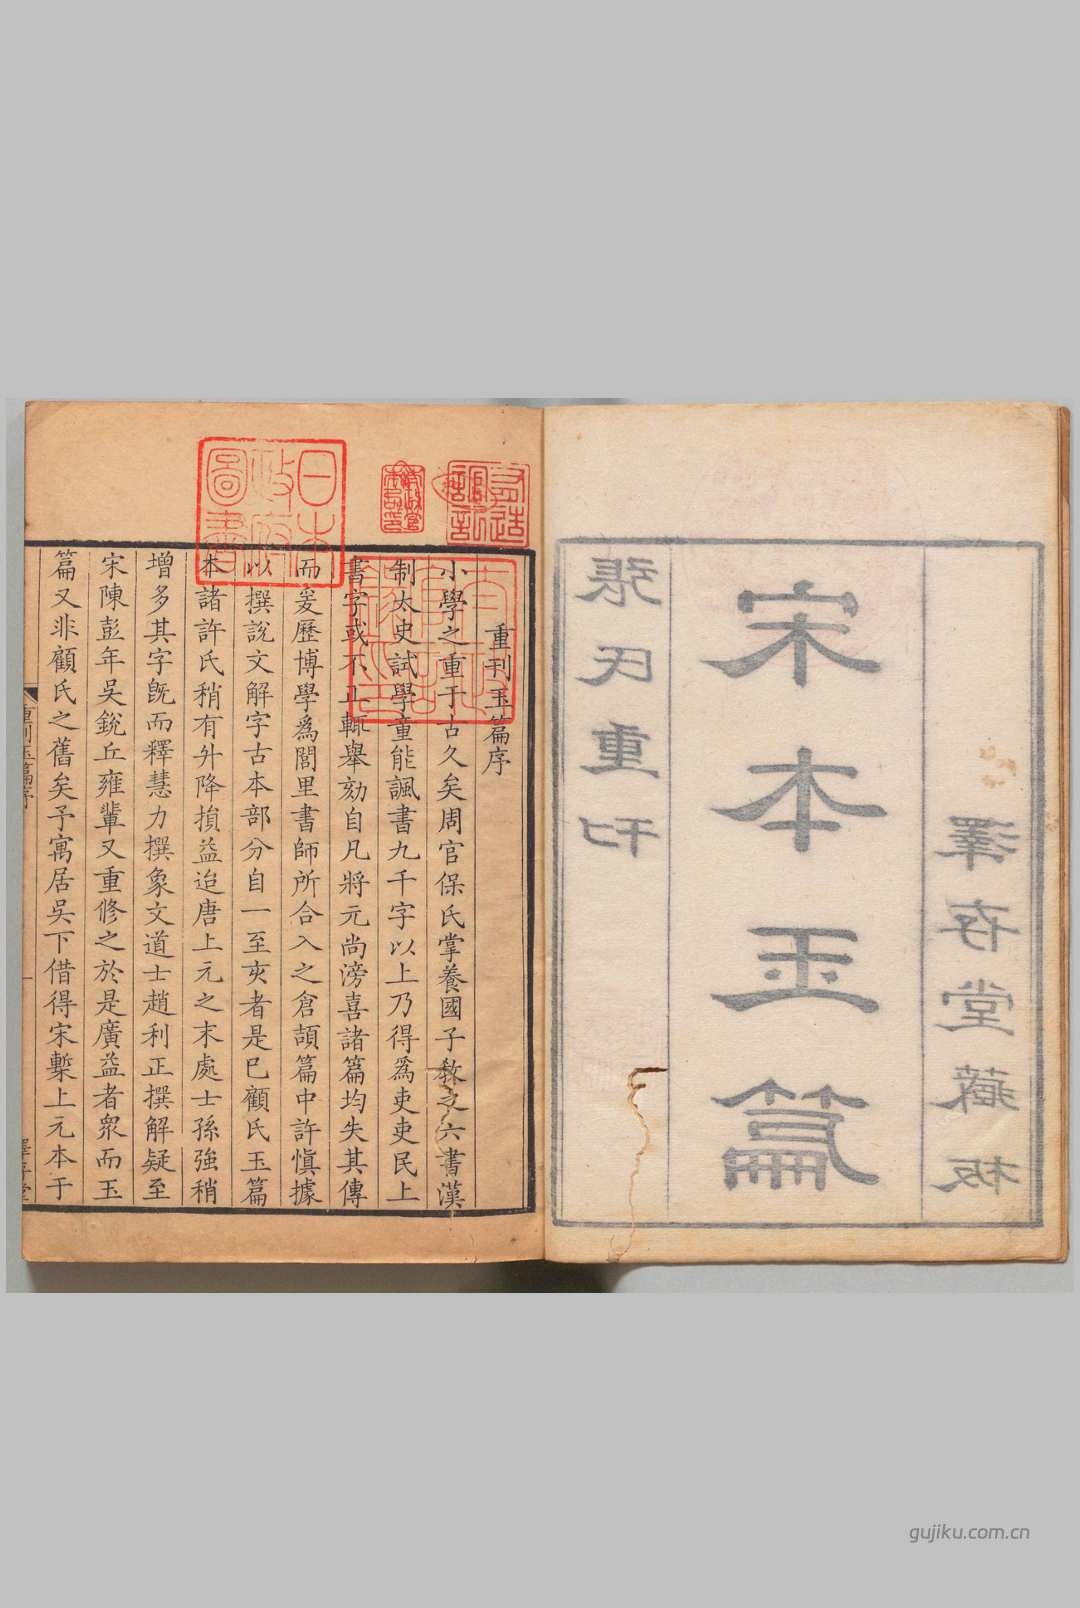 張氏重刊
宋本玉篇
澤存堂藏板
重刊玉篇序
小學之重于古久矣周官保氏掌養國子敎之六書漢
制太史試學童能諷書九千字以上乃得爲吏吏民上
書字或不正輒舉劾自凡將元尚滂喜諸篇均失其傳
而爰歷博學爲閭里書師所合入之倉頡篇中許愼據
以撰說文解字古本部分自一至亥者是已顧氏玉篇
本諸許氏稍有升降損益迨唐上元之末處士孫強稍
增多其字旣而釋慧力撰象文道士趙利正撰解疑至
宋陳彭年吳銳丘雍輩又重修之於是廣益者衆而玉
篇又非顧氏之舊矣予寓居吳下借得宋槧上元本于
重刊玉篇序
一
澤存堂
日本政府圖書
gujiku.com.cn